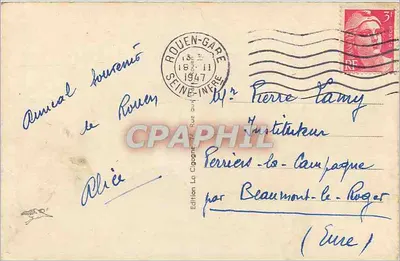 Amical souvenir
de Rouen
Alice
ROUEN-GARE
18-11
1947
SEINE-INFRE
3F
RF
Edition La Cigogne
Mr Pierre Lamy
Instituteur
Perriers-la-Campagne
par Beaumont-le-Roger
(Eure)
CPAPHIL